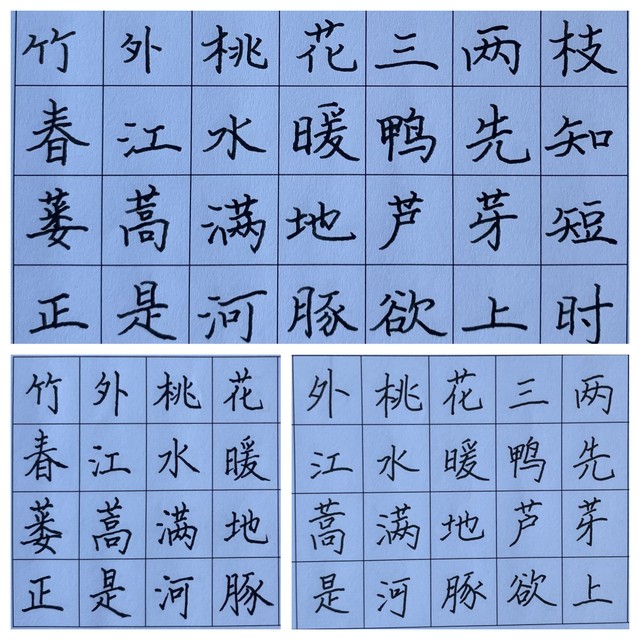 竹外桃花三两枝
春江水暖鸭先知
蒌蒿满地芦芽短
正是河豚欲上时
竹外桃花
春江水暖
蒌蒿满地
正是河豚
外桃花三两
江水暖鸭先
蒿满地芦芽
是河豚欲上